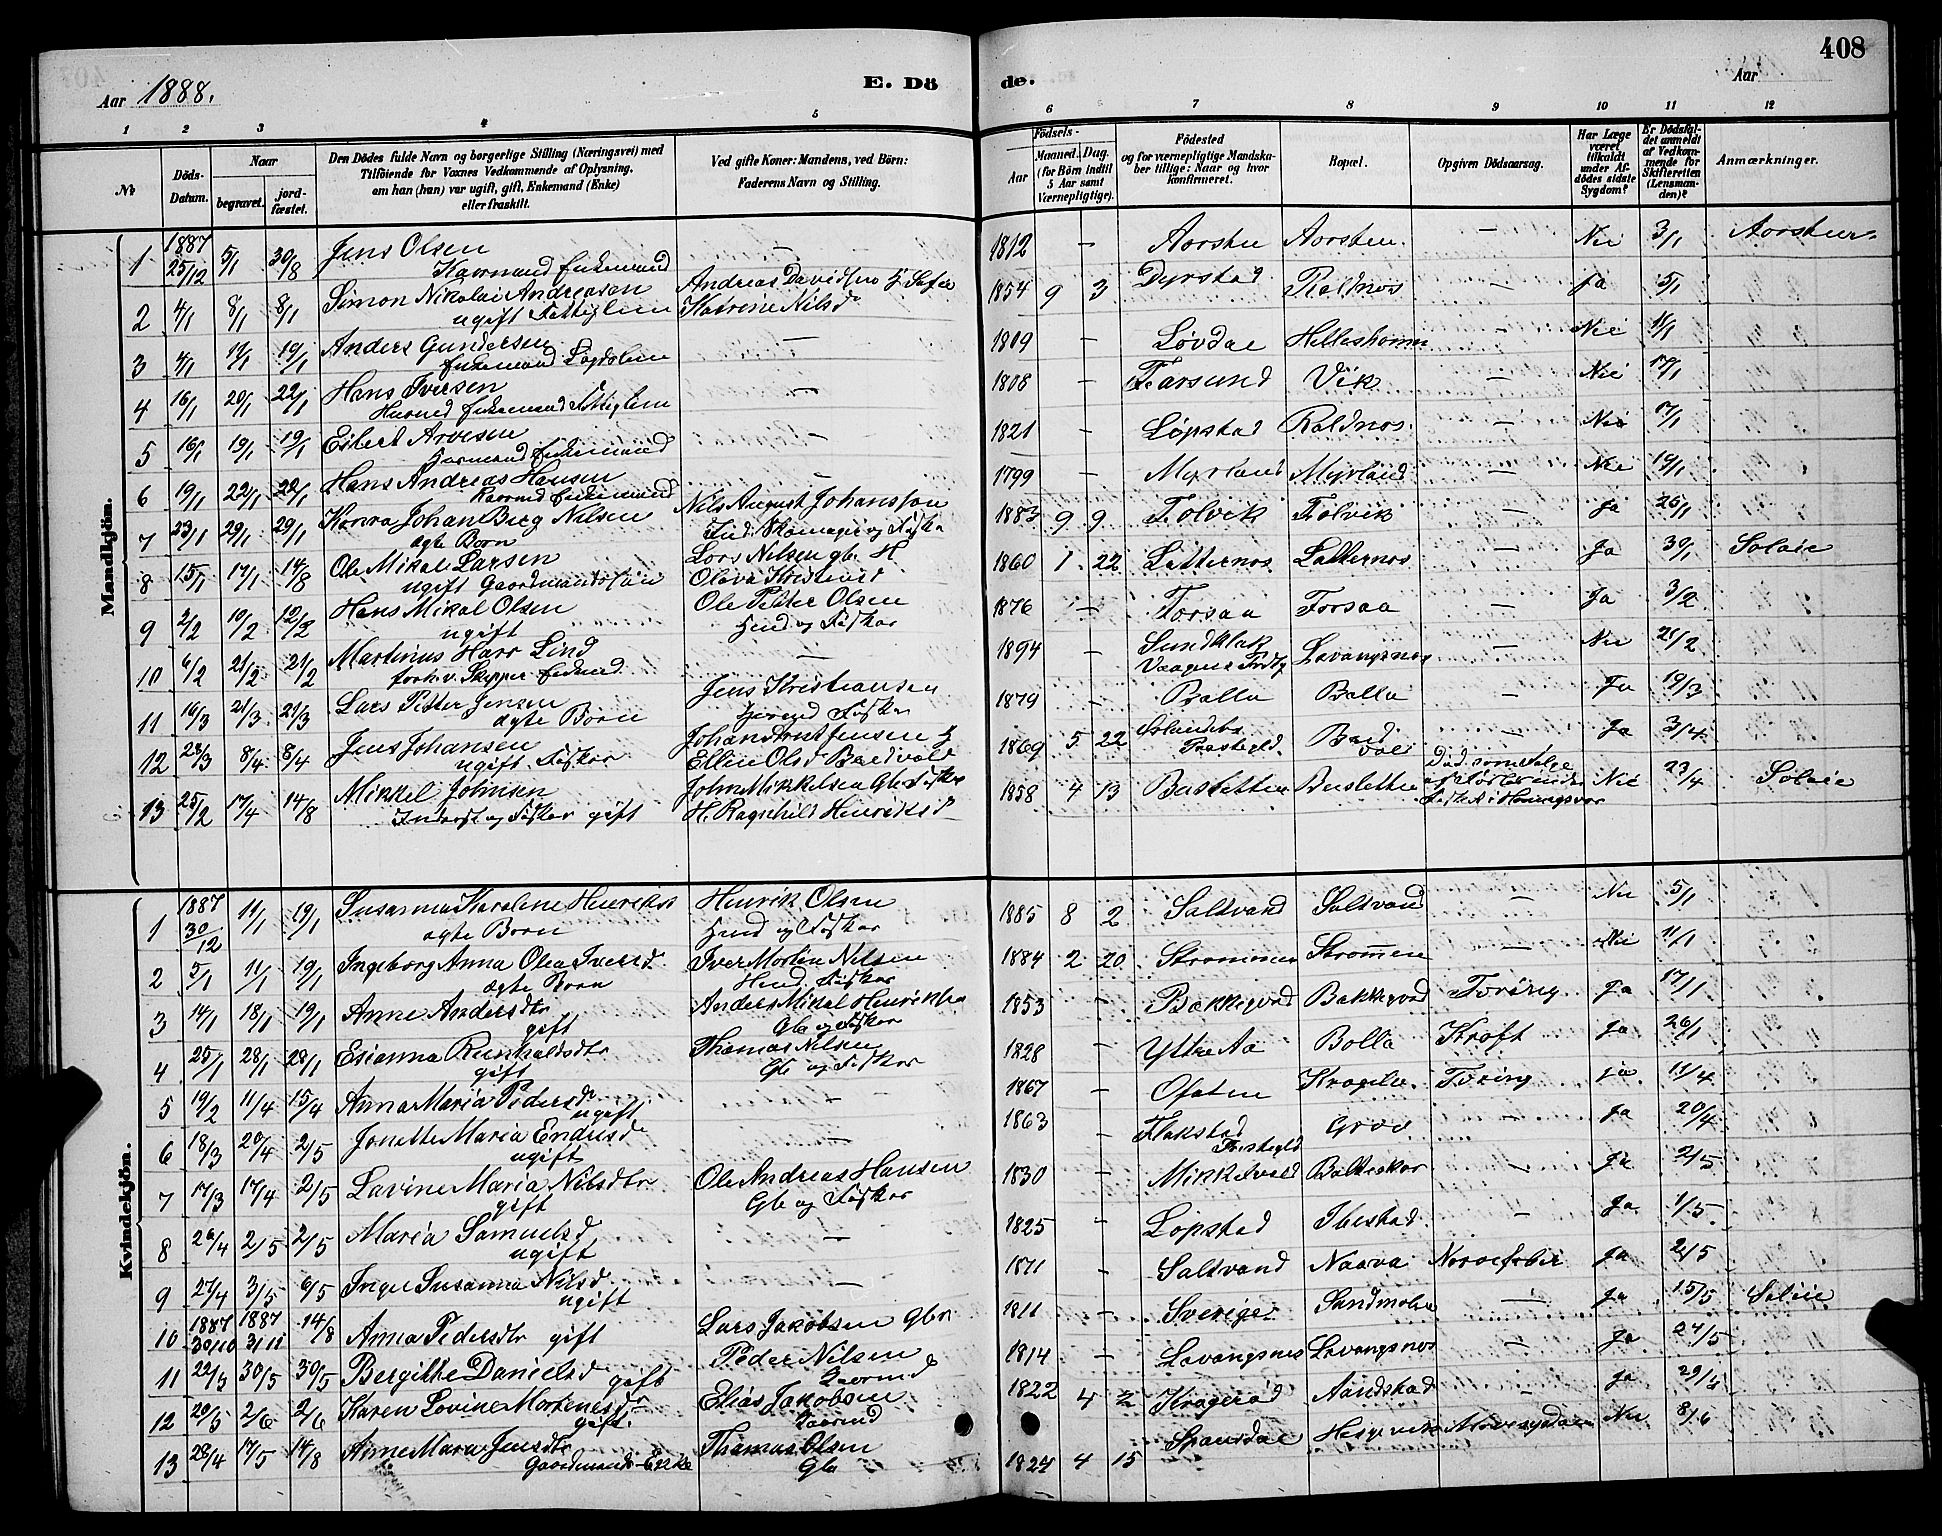 408
Aar 1888.
E. Dö
de.
Aar
1 2 3 4 5
6 7 8 9 10 11 12
No
Döds-Datum.
Naar
begravet. jord-fæstet.
Den Dödes fulde Navn og borgerlige Stilling (Næringsvei) med
Tilföiende for Voxnes Vedkommende af Oplysning,
om han (hun) var ugift, gift, Enkemand (Enke)
eller fraskilt.
Ved gifte Koner: Mandens, ved Börn:
Faderens Navn og Stilling.
Födsels-
Aar
Maaned. Dag.
(for Börn indtil
5 Aar samt
Værnepligtige).
Födested
og for værnepligtige Mandska-
ber tillige: Naar og hvor
konfirmeret.
Bopæl.
Opgiven Dödsaarsag.
Har Læge
været
tilkaldt
under Af-
dödes sidste
Sygdom?
Er Dödsfal-
det anmeldt
af Vedkom-
mende for
Skifteretten
(Lensman-
den)?
Anmærkninger.
Mandkjön.
1 1887 25/12 5/1 30/8 Jens Olsen — 1812 — Aarsten Aarsten — Nei 3/1 Aarsten
Kaarmand Enkemand
2 4/1 8/1 8/1 Simon Nikolai Andreasen Andreas Davidsen 1854 9 3 Dyrstad Roldnos — Ja 5/1
ugift Fattiglem Katrine Nilsd
3 4/1 19/1 19/1 Anders Gundersen — 1809 — Løvdal Nei 11/1
Enkemand
4 16/1 20/1 22/1 Hans Iversen — 1808 — Farsund Vik — Nei 17/1
Huusmd Enkemand Fattiglem
5 16/1 19/1 19/1 Eilert Arvesen — 1821 — Løpstad Roldnos — Nei 17/1
Enkemand
6 19/1 22/1 22/1 Hans Andreas Hansen — 1799 — Myrland Myrland — Nei 19/1
Kaarmd Enkemand
7 23/1 29/1 29/1 Konra Johan Berg Nilsen Nils August Johansson 1883 9 9 Folvik Folvik — Ja 26/1
ægte Barn Ind. Skomager og Fisker
8 15/1 17/1 14/8 Ole Mikal Larsen Lars Nilsen gbr H 1860 1 22 Latternos Latternos — Ja 30/1 Solvie
ugift Gaardmandssøn
9 2/2 10/2 12/2 Hans Mikal Olsen Ole Petter Olsen 1876 — Forsaa Forsaa — Ja 3/2
ugift og Fisker
10 6/2 21/2 21/2 Martinus Harr Lind — 1894 — Sundklak Lavangsnos — Nei 21/2
forh.v. Skipper Enkemd Vaagens
11 16/3 21/3 21/3 Lars Petter Jensen Jens Kristiansen 1879 — Balla Balla — Ja 19/3
ægte Barn Fisker
12 28/3 8/4 8/4 Jens Johansen 1869 5 22 Ja 3/4
ugift Fisker Ellen Olsd Bardvold Præstegld.
13 25/2 17/4 14/8 Mikkel Johnsen John Mikkelsen Gbr Fisker 1858 4 13 Busletten Busletten Nei 23/4 Solvie
Inderst og Fisker gift H. Ragnhild Henriksd
Kvindekjön.
1 1887 30/12 11/1 19/1 Susanna Karoline Henriksd Henrik Olsen 1885 8 2 Saltvand Saltvand — Nei 5/1
ægte Barn og Fisker
2 5/1 11/1 19/1 Ingeborg Anna Olea Iversd Iver Martin Nilsen 1884 2 20 Strømmen Strømmen — Nei 11/1
ægte Barn Fisker
3 14/1 18/1 19/1 Anne Andersdtr Anders Mikal Henriksen 1853 — Bakkejord Bakkejord Tæring Ja 17/1
gift Gbr og Fisker
4 25/1 28/1 28/1 Esianna Runholdsdtr Thomas Nilsen 1828 — Yttre Aa Bolla Kræft Ja 26/1
gift Gbr og Fisker
5 19/2 11/4 15/4 Anna Maria Pedersd — 1867 — Ofoten Tæring Ja 11/4
ugift
6 18/3 20/4 2/5 Jonette Maria Endresd — 1863 — Flakstad Grov Ja 20/4
ugift Præstegld
7 17/3 17/4 2/5 Lavine Maria Nilsdtr Ole Andreas Hansen 1830 — Mikkelvold — Ja 2/5
gift Gbr og Fisker
8 26/4 2/5 2/5 Maria Samuelsd — 1825 — Løpstad Ibestad — Ja 1/5
ugift
9 27/4 3/5 6/5 Inger Susanna Nilsd — 1871 — Saltvand Naava Nervefeber Ja 2/5
ugift
10 1887 30/10 1887 3/11 14/8 Anna Pedersdtr gift Lars Jakobsen Gbr 1811 — Sverige Sandmolen — Ja 15/5 Solvie
11 22/5 30/5 30/5 Bergitte Danielsd gift Peder Nilsen 1814 — Lavangsnes Lavangsnos — Ja 27/5
Kaarmd
12 20/5 2/6 2/6 Karen Lovine Mortensd Elias Jakobsen 1822 4 2 Kragerød Aandstad Ja 29/5
gift Kaarmd
13 28/4 17/5 14/8 Anne Maria Jensdtr Thomas Olsen 1827 4 15 Spansdal Nei 8/6
Gaardmands Enke Gbr